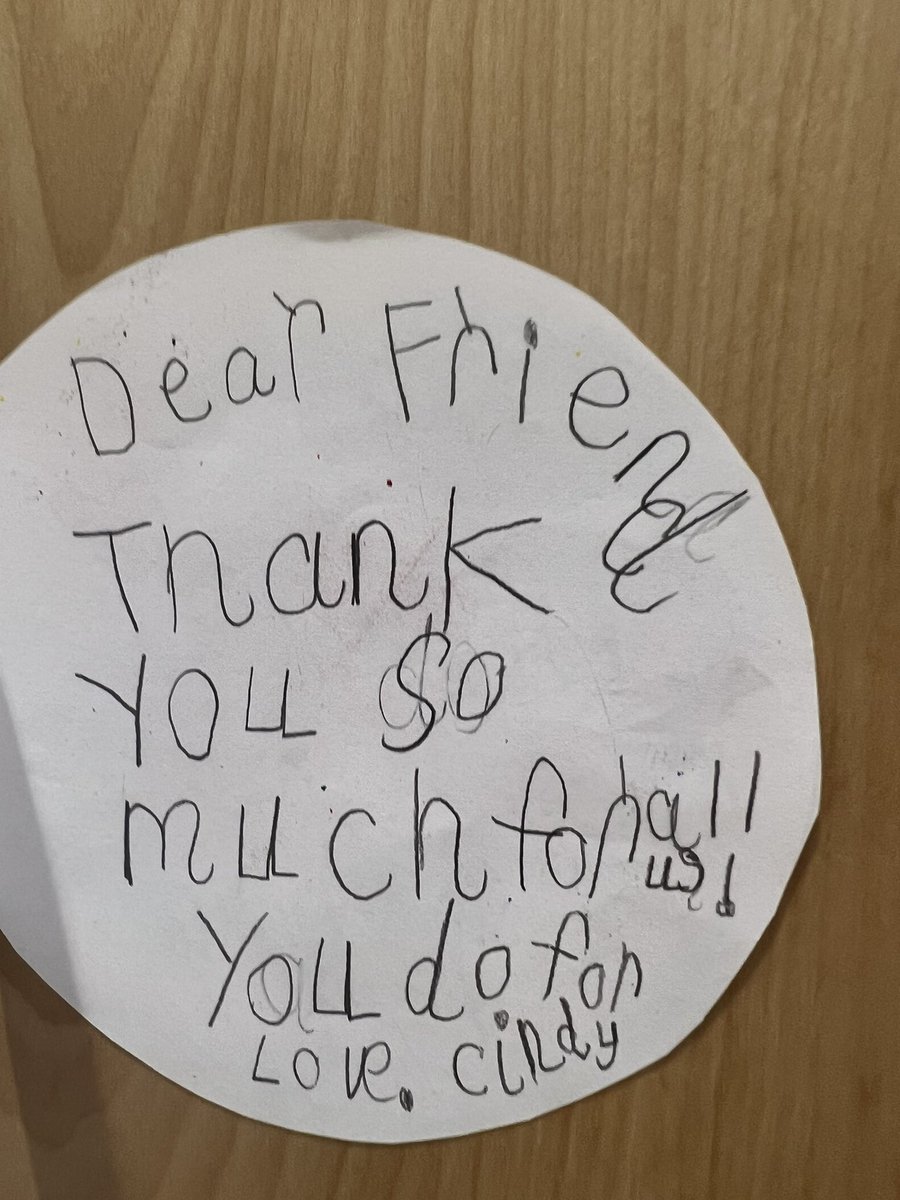 Dear Friend
Thank
You so
much for all
us!
You do for
Love. cindy